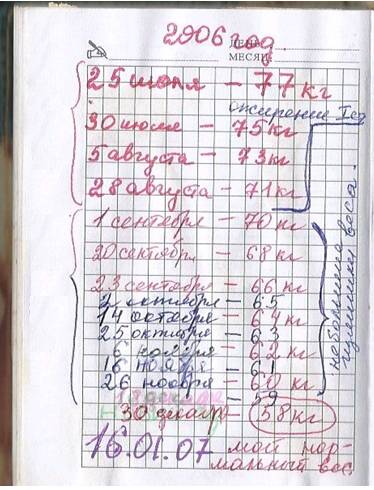 2006 год.
ДЕНЬ
МЕСЯЦ
25 июля – 77 кг
ожирение I ст
30 июля – 75 кг
5 августа – 73 кг
28 августа – 71 кг
1 сентября – 70 кг
20 сентября – 68 кг
23 сентября – 66 кг
2 октября – 65
14 октября – 64 кг
25 октября – 63
6 ноября – 62 кг
16 ноября – 61
26 ноября – 60 кг
59
30 декабр – 58 кг
16.01.07 мой нор-
мальный вес
небольшие
веса.